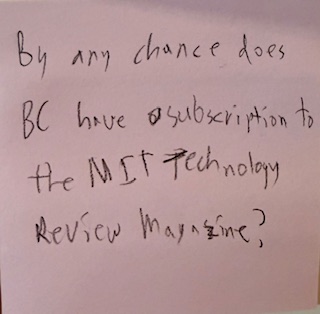 By any chance does
BC have a subscription to
the MIT Technology
Review Magazine?